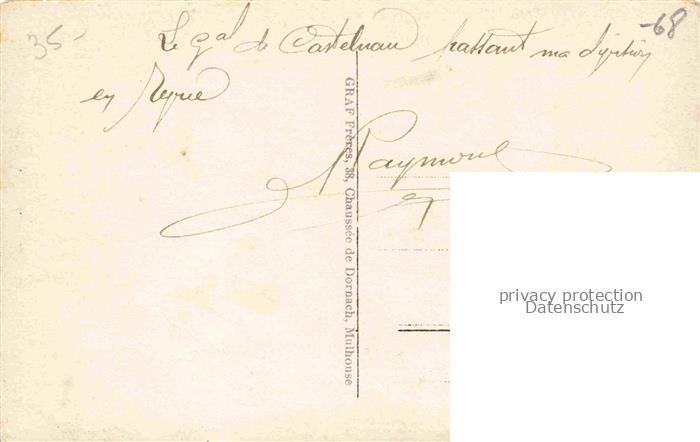 35-
-68
Le gal de Castelnau passant ma division
en Revue
Raymond
GRAF Frères, 38, Chaussée de Dornach, Mulhouse
privacy protection
Datenschutz